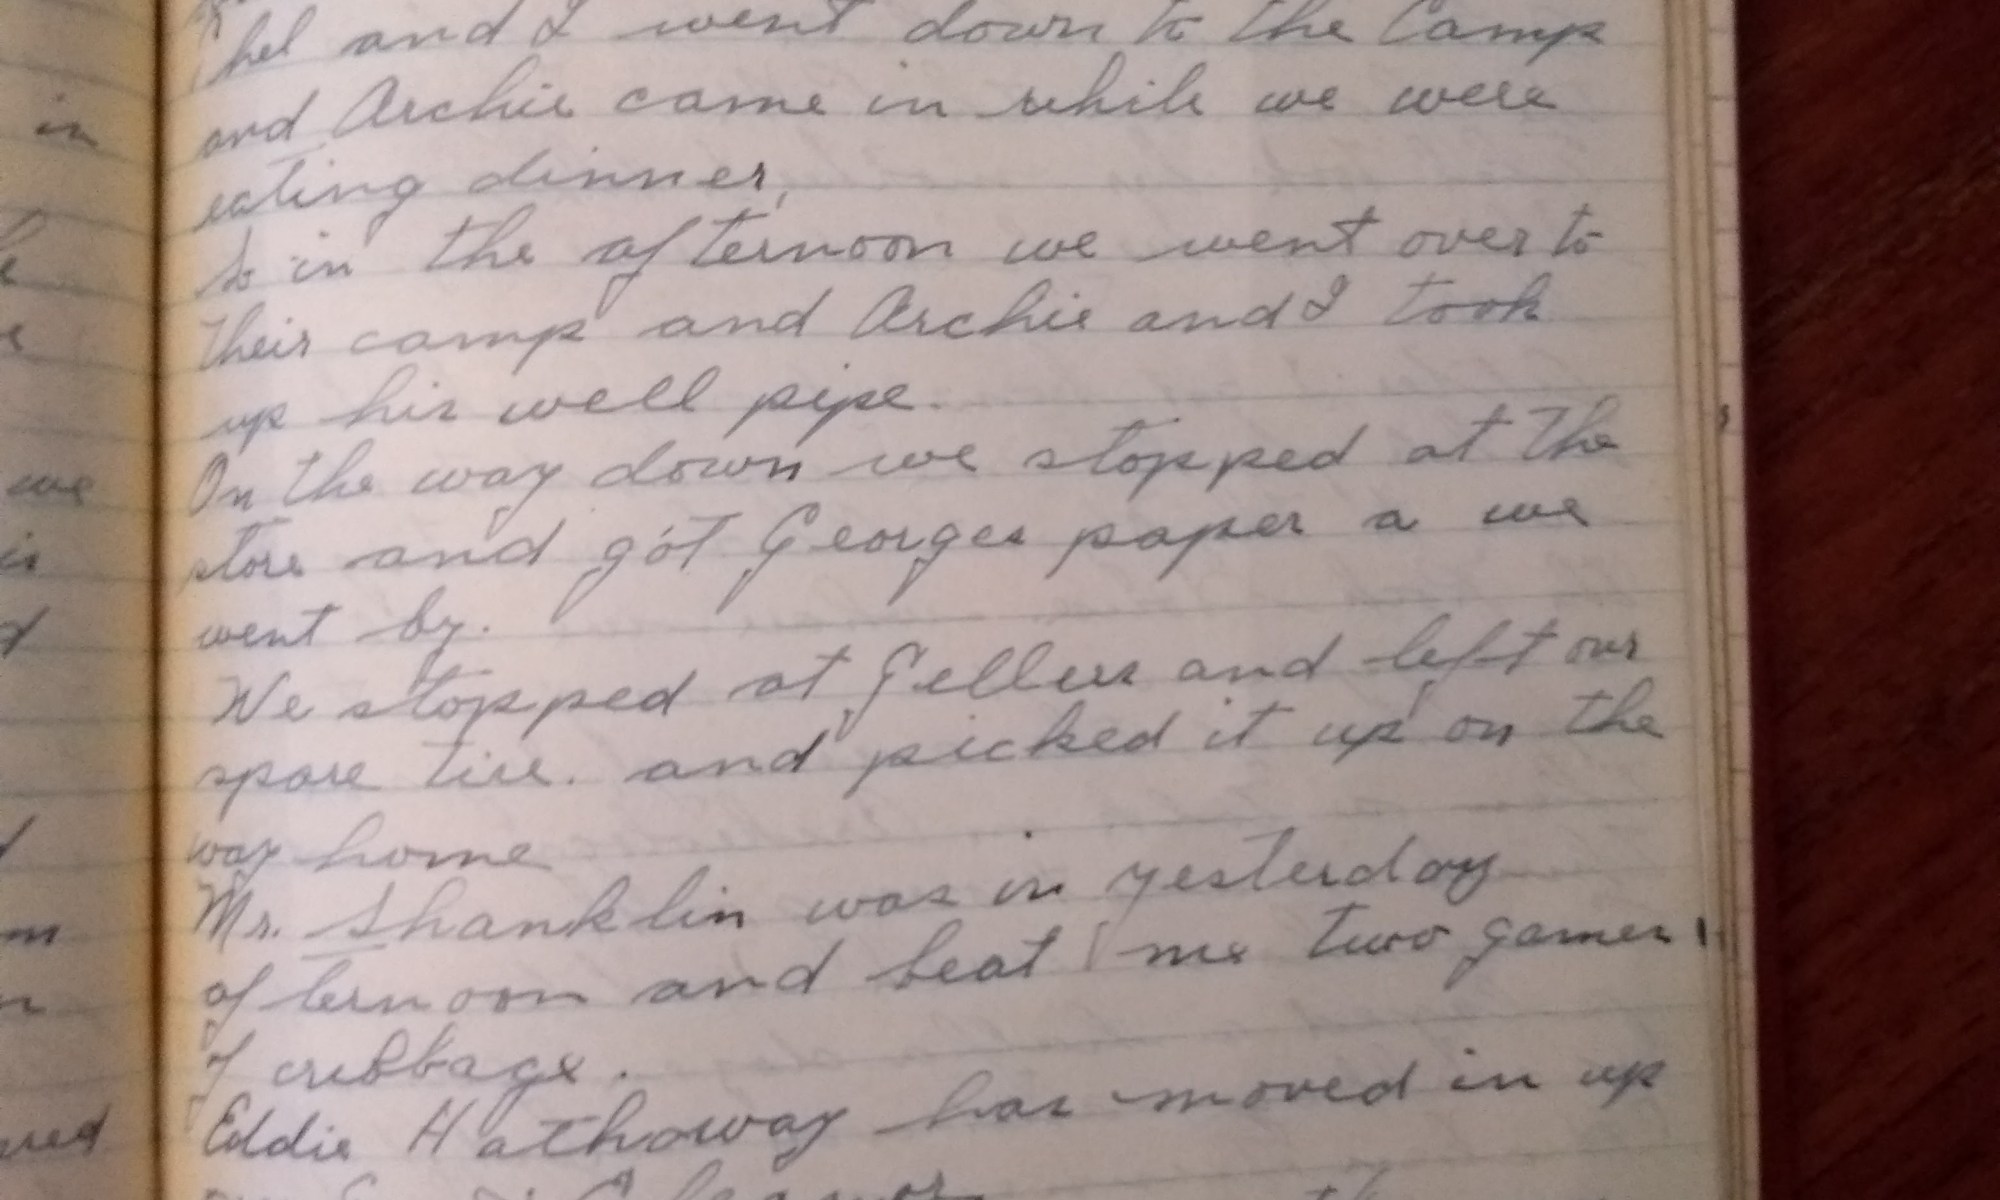 hel and I went down to the Camp
and Archie came in while we were
eating dinner,
So in the afternoon we went over to
their camp and Archie and I took
up his well pipe.
On the way down we stopped at the
store and got Georges paper a we
went by.
We stopped at Gellers and left our
spare tire. and picked it up on the
way home
Mr. Shanklin was in yesterday
afternoon and beat me two games
of cribbage.
Eddie Hathaway has moved in up
in
we